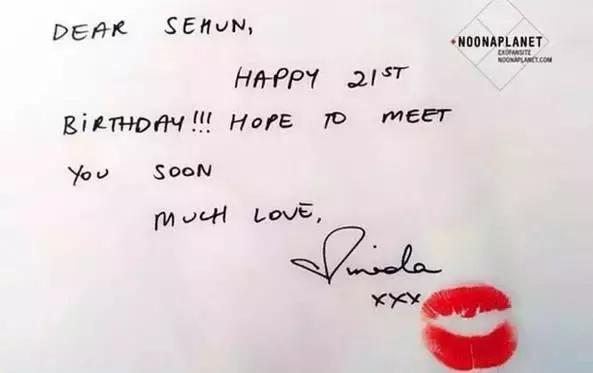 DEAR SEHUN,
NOONAPLANET
EXOFANSITE
NOONAPLANET.COM
HAPPY 21ST
BIRTHDAY!!! HOPE TO MEET
YOU SOON
MUCH LOVE,
xxx